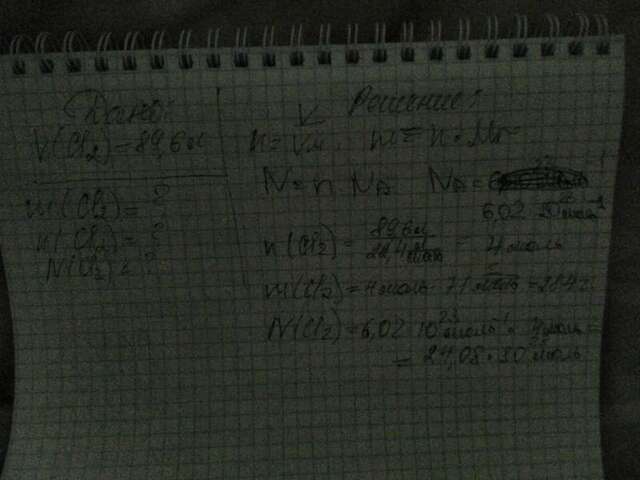 Дано:
V(Cl2) = 89,6 л
m(Cl2) = ?
n(Cl2) = ?
N(Cl2) = ?
Решение:
n = V/Vм, m = n · Mr
N = n · NA NA =
6,02 · 10²³ моль⁻¹
n(Cl2) = 89,6 л / 22,4 л/моль = 4 моль
m(Cl2) = 4 моль · 71 г/моль = 284 г
N(Cl2) = 6,02 · 10²³ моль⁻¹ · 4 моль =
= 24,08 · 10²³ моль